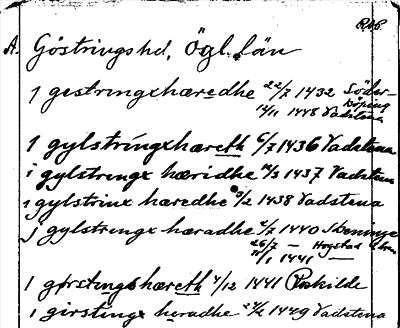 A. Göstringshd, Ögl. län
I gestringxhæredhe 22/7 1432 Söder-
köping
14/11 1448 Vadstena
I gylstringxhæreth 6/7 1436 Vadstena
i gylstrengx hæridhe 14/3 1437 Vadstena
i gylstrinx hæredhe 3/2 1438 Vadstena
j gylstrengx hæradhe 2/7 1440 Skeninge
26/7 — Hogstad
11/1 1441 —
I gørstingshæreth 4/12 1441
i girstingx heradhe 22/2 1449 Vadstena